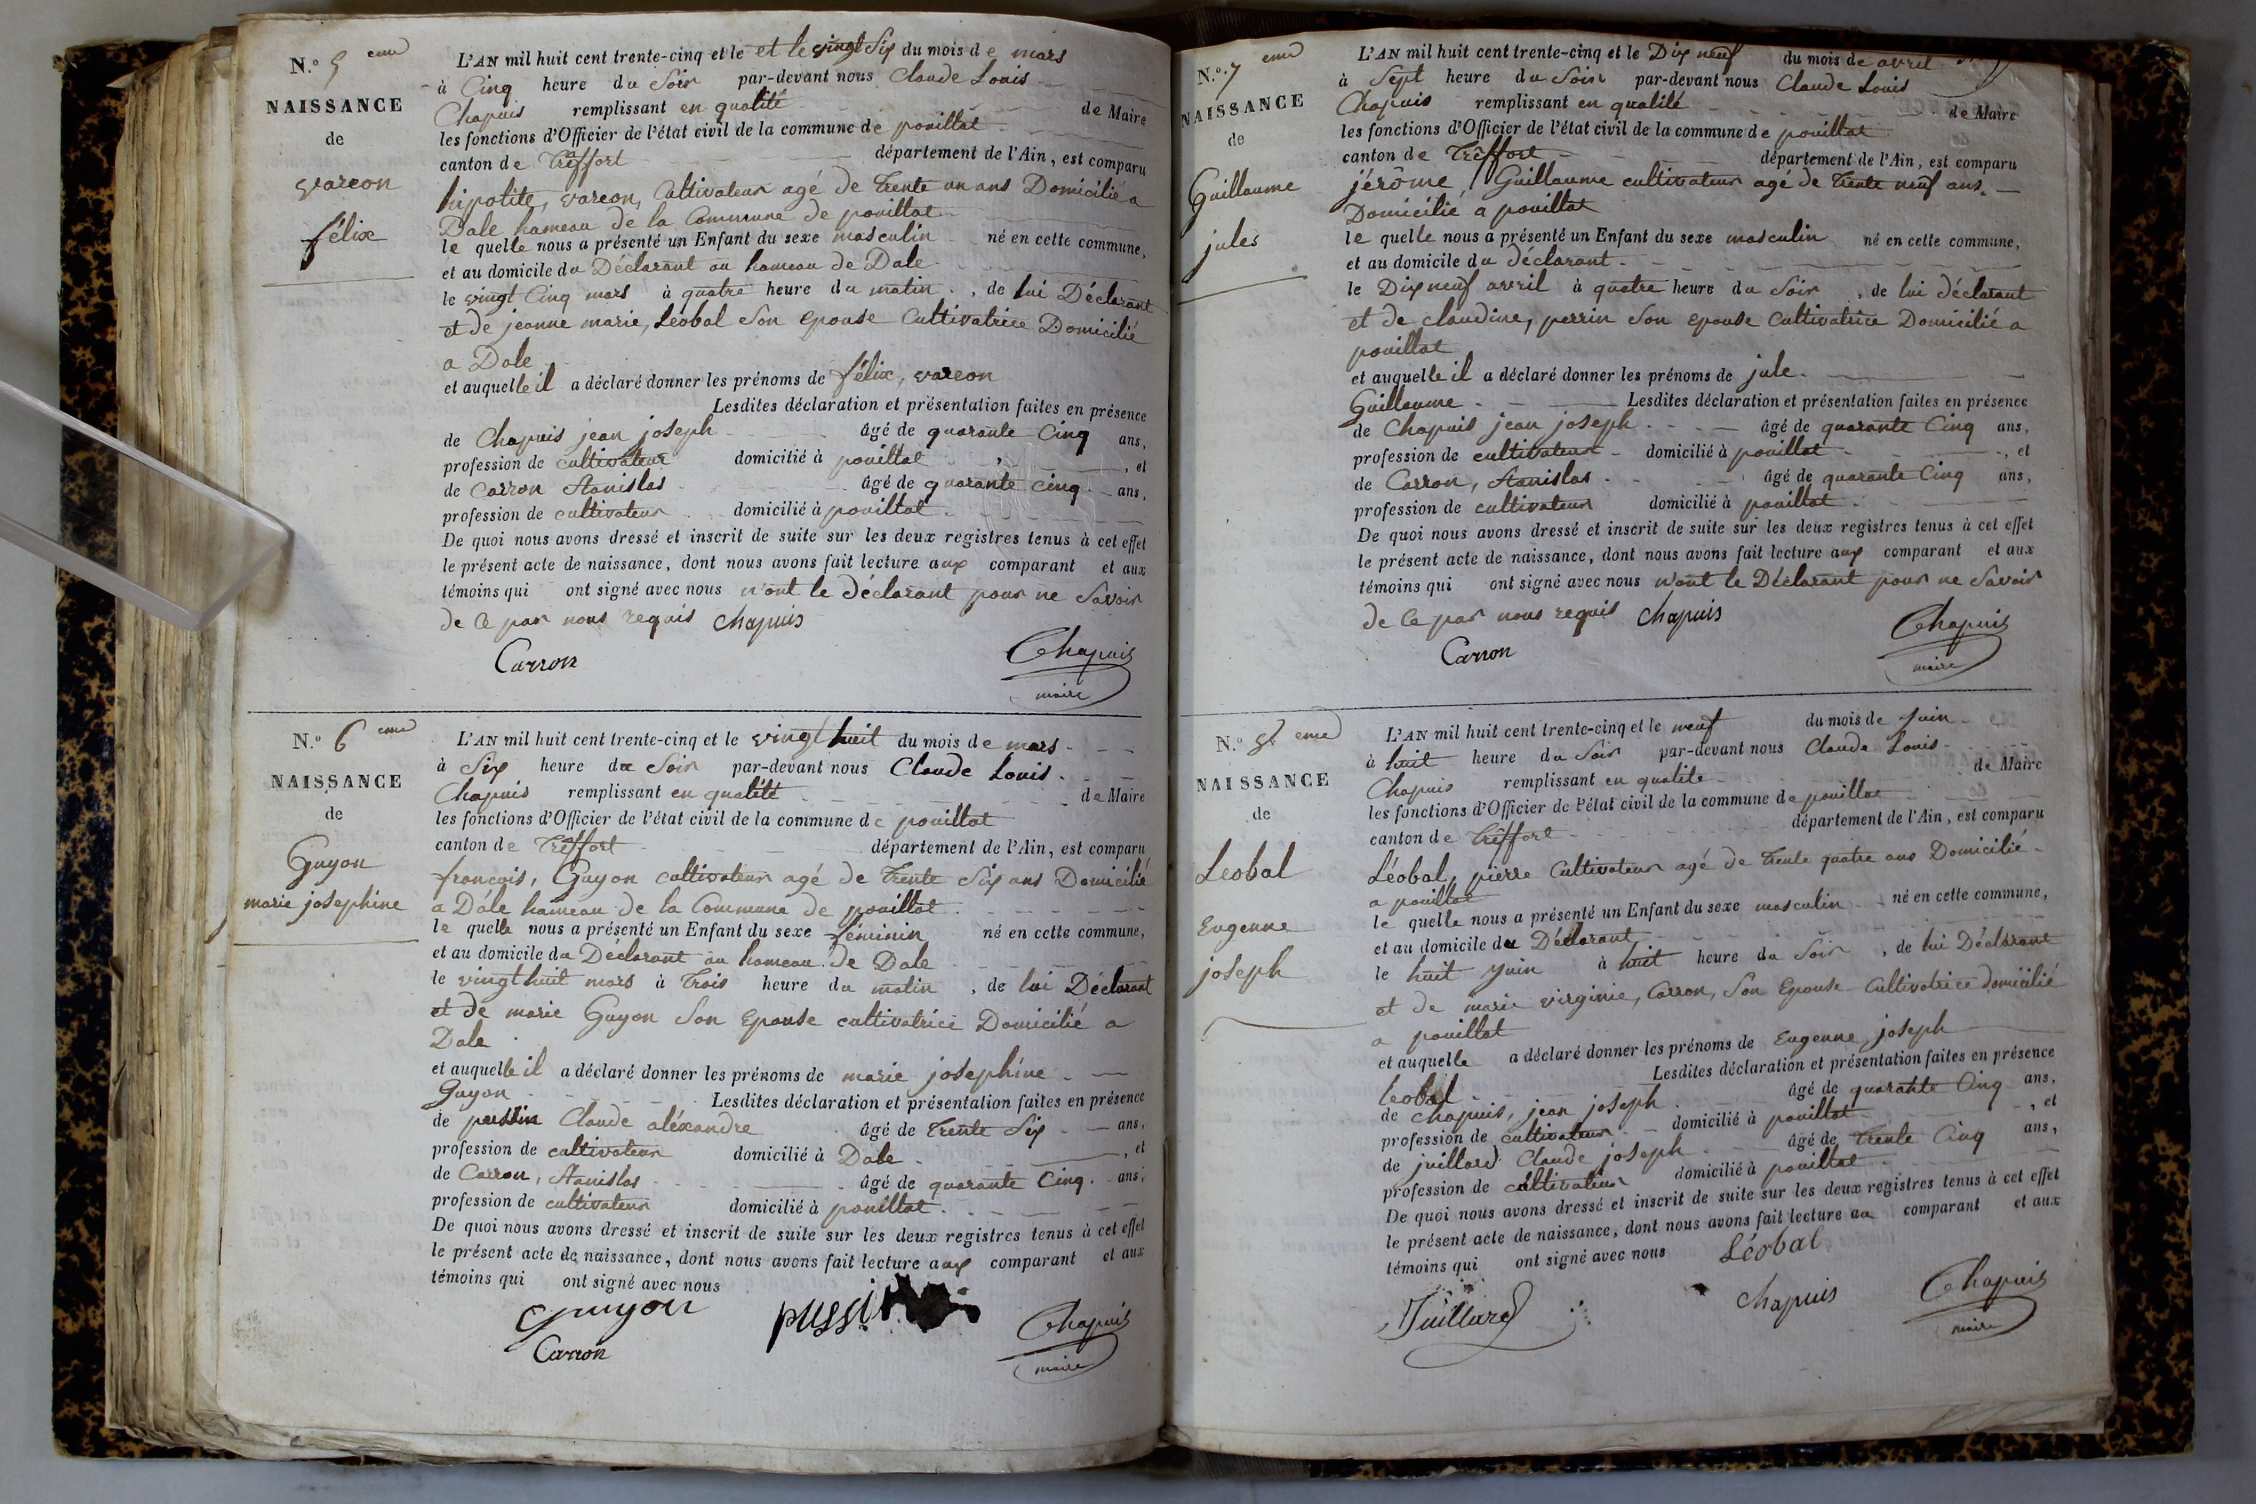 N.o 5 eme
NAISSANCE
de
vareon
félix
L'AN mil huit cent trente-cinq et le et le vingt Six du mois de mars
à Cinq heure du Soir par-devant nous Claude Louis
Chapuis remplissant en qualité de Maire
les fonctions d'Officier de l'état civil de la commune de pouillat
canton de Trêffort département de l'Ain, est comparu
hipolite, vareon, Cultivateur agé de Trente un ans Domicilié a
Dale hameau de la Commune de pouillat
le quelle nous a présenté un Enfant du sexe masculin né en cette commune,
et au domicile du Déclarant au hameau de Dale
le vingt Cinq mars à quatre heure du matin, de lui Déclarant
et de jeanne marie, Léobal Son epouse Cultivatrice Domicilié
a Dale
et auquelle il a déclaré donner les prénoms de félix, vareon
Lesdites déclaration et présentation faites en présence
de Chapuis jean joseph âgé de quarante Cinq ans,
profession de cultivateur domicilié à pouillat, et
de Carron Stanislas âgé de quarante cinq ans,
profession de cultivateur domicilié à pouillat
De quoi nous avons dressé et inscrit de suite sur les deux registres tenus à cet effet
le présent acte de naissance, dont nous avons fait lecture aux comparant et aux
témoins qui ont signé avec nous n'ont le déclarant pour ne Savoir
de Ce par nous requis chapuis
Carron Chapuis
maire
N.o 6 eme
NAISSANCE
de
Guyon
marie josephine
L'AN mil huit cent trente-cinq et le vingt huit du mois de mars
à Six heure du Soir par-devant nous Claude Louis
Chapuis remplissant en qualité de Maire
les fonctions d'Officier de l'état civil de la commune de pouillat
canton de Trêffort département de l'Ain, est comparu
francois, Guyon cultivateur agé de Trente Six ans Domicilié
a Dale hameau de la Commune de pouillat
le quelle nous a présenté un Enfant du sexe féminin né en cette commune,
et au domicile du Déclarant au hameau de Dale
le vingt huit mars à Trois heure du matin, de lui Déclarant
et de marie Guyon Son Epouse cultivatrice Domicilié a
Dale
et auquelle il a déclaré donner les prénoms de marie josephine
Guyon Lesdites déclaration et présentation faites en présence
de pussin Claude aléxandre âgé de Trente Six ans,
profession de cultivateur domicilié à Dale, et
de Carron, Stanislas âgé de quarante Cinq ans,
profession de cultivateur domicilié à pouillat
De quoi nous avons dressé et inscrit de suite sur les deux registres tenus à cet effet
le présent acte de naissance, dont nous avons fait lecture aux comparant et aux
témoins qui ont signé avec nous
Guyon pussin Chapuis
Carron maire
N.o 7 eme
NAISSANCE
de
Guillaume
jules
L'AN mil huit cent trente-cinq et le Dix neuf du mois de avril
à Sept heure du Soir par-devant nous Claude Louis
Chapuis remplissant en qualité de Maire
les fonctions d'Officier de l'état civil de la commune de pouillat
canton de Trêffort département de l'Ain, est comparu
jérôme, Guillaume cultivateur agé de Trente neuf ans
Domicilié a pouillat
le quelle nous a présenté un Enfant du sexe masculin né en cette commune,
et au domicile du déclarant
le Dix neuf avril à quatre heure du Soir, de lui déclarant
et de claudine, perrin Son epouse Cultivatrice Domicilié a
pouillat
et auquelle il a déclaré donner les prénoms de jule
Guillaume Lesdites déclaration et présentation faites en présence
de Chapuis jean joseph âgé de quarante Cinq ans,
profession de cultivateur domicilié à pouillat, et
de Carron, Stanislas âgé de quarante Cinq ans,
profession de cultivateur domicilié à pouillat
De quoi nous avons dressé et inscrit de suite sur les deux registres tenus à cet effet
le présent acte de naissance, dont nous avons fait lecture aux comparant et aux
témoins qui ont signé avec nous n'ont le Déclarant pour ne Savoir
de Ce par nous requis chapuis Chapuis
Carron maire
N.o 8 eme
NAISSANCE
de
Leobal
Eugenne
joseph
L'AN mil huit cent trente-cinq et le neuf du mois de Juin
à huit heure du Soir par-devant nous Claude Louis
Chapuis remplissant en qualite de Maire
les fonctions d'Officier de l'état civil de la commune de pouillat
canton de Trêffort département de l'Ain, est comparu
Léobal, pierre Cultivateur agé de Trente quatre ans Domicilié
a pouillat
le quelle nous a présenté un Enfant du sexe masculin né en cette commune,
et au domicile du Déclarant
le huit Juin à huit heure du Soir, de lui Déclarant
et de marie virginie, Carron, Son Epouse Cultivatrice domicilié
a pouillat
et auquelle a déclaré donner les prénoms de Eugenne joseph
Leobal Lesdites déclaration et présentation faites en présence
de chapuis, jean joseph âgé de quarante Cinq ans,
profession de cultivateur domicilié à pouillat, et
de juillard Claude joseph âgé de Trente Cinq ans,
profession de cultivateur domicilié à pouillat
De quoi nous avons dressé et inscrit de suite sur les deux registres tenus à cet effet
le présent acte de naissance, dont nous avons fait lecture au comparant et aux
témoins qui ont signé avec nous Léobal
Juillard chapuis Chapuis
maire